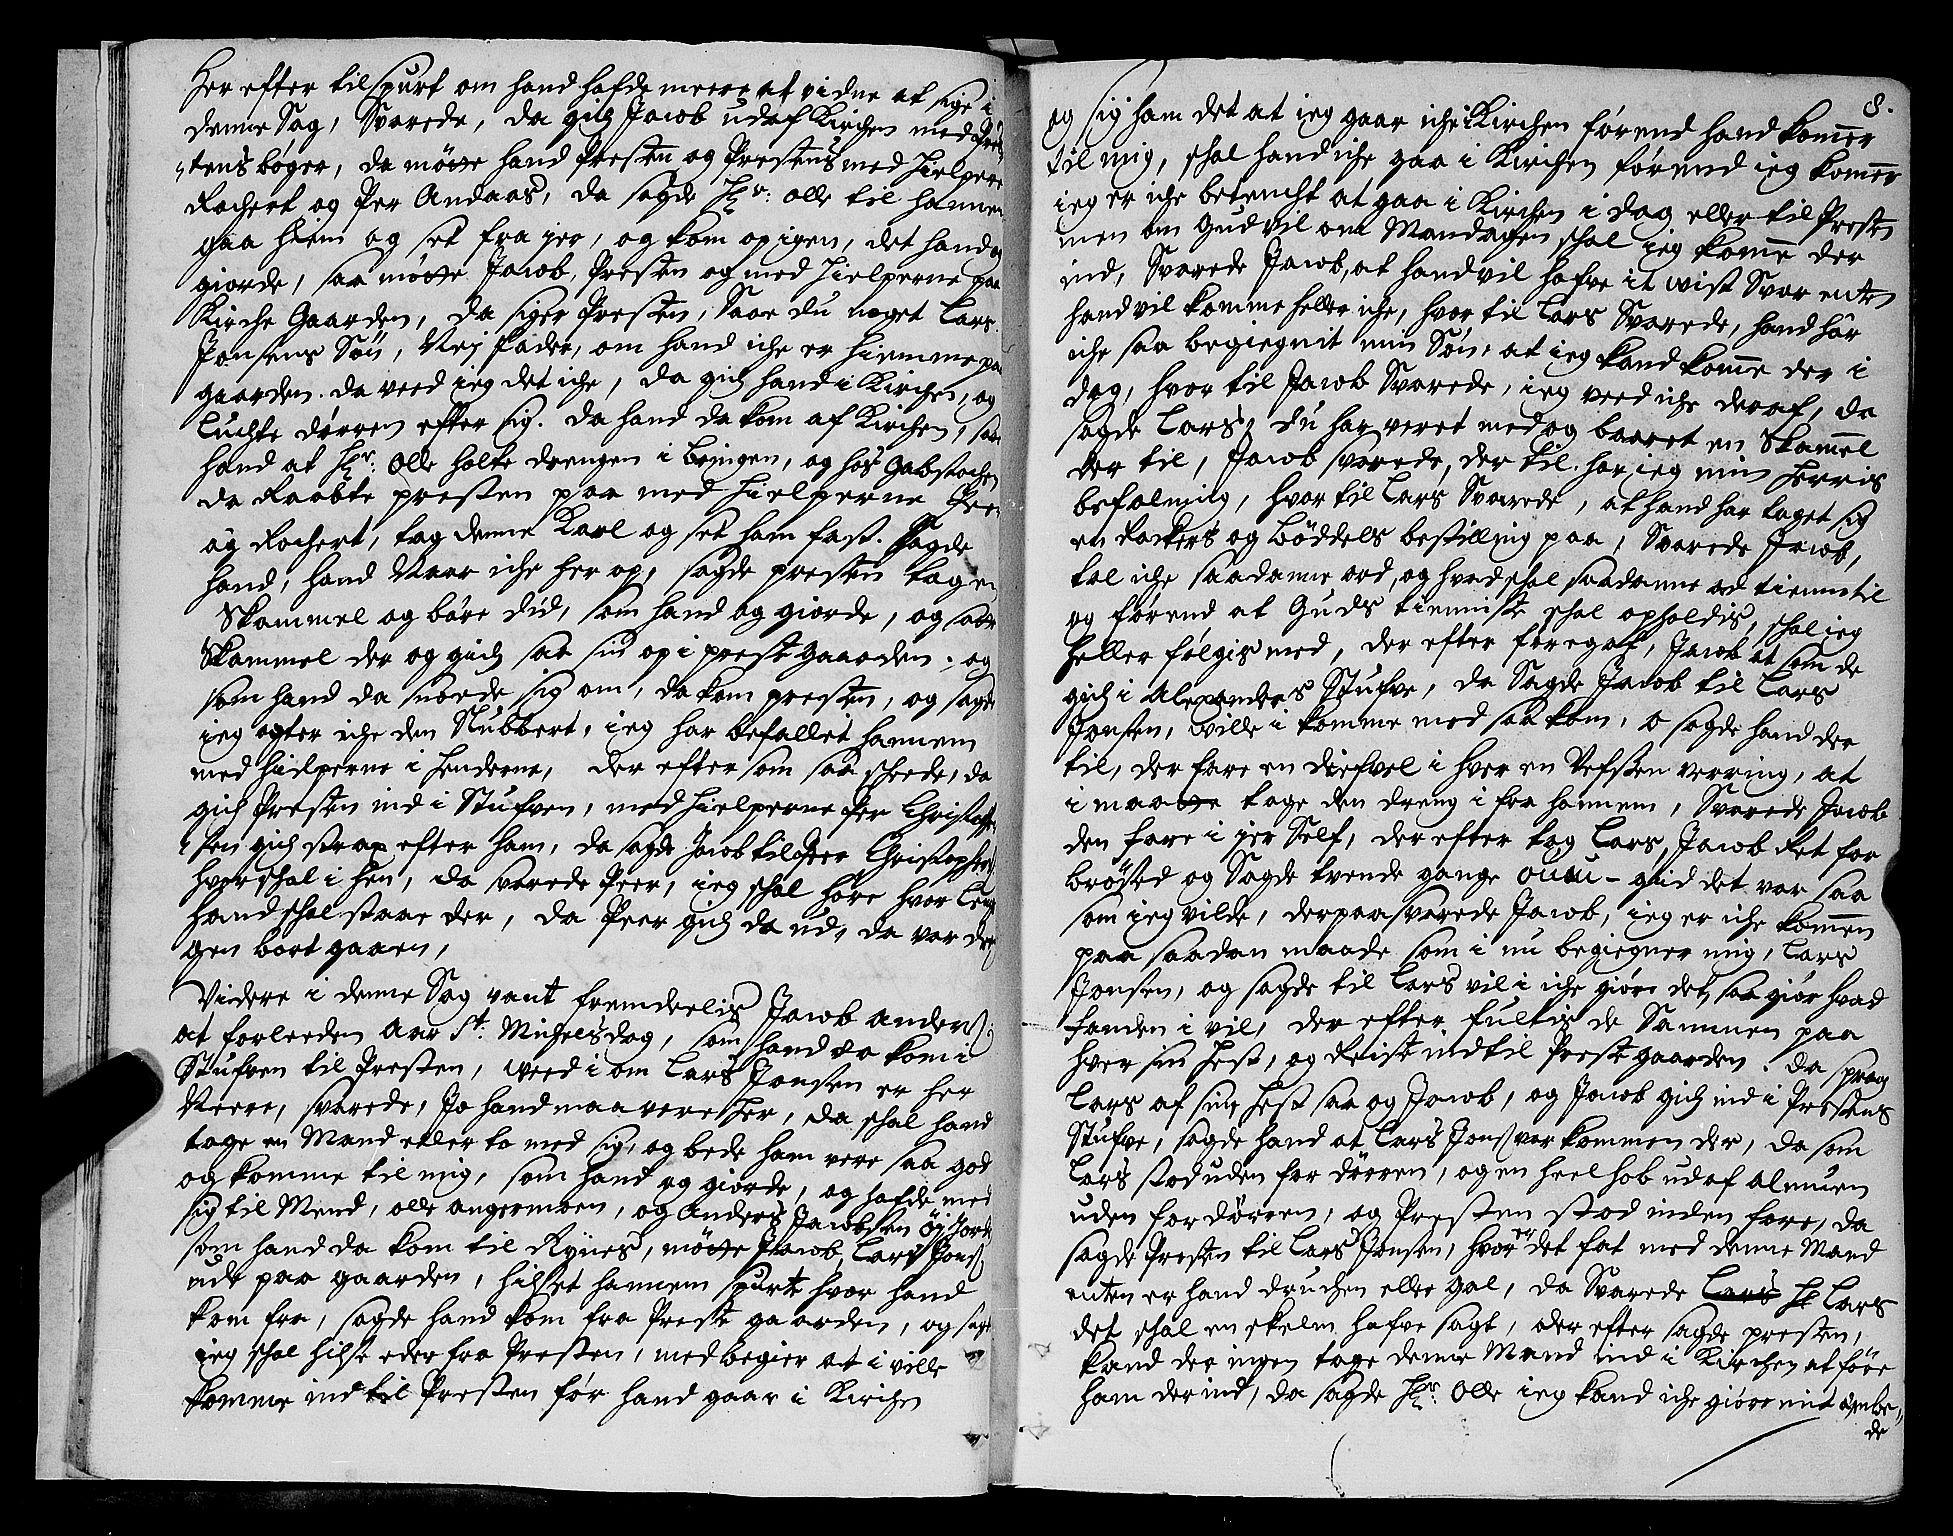 Her efter tilspurt om hand hafde meere at vidne at sige i
denne Sag, Svarede, da gich Jacob udaf Kirchen med Pres
tens bøger, da møtte hand Presten og Prestens med Hielpere
Rochert og Per Andaas, da sagde Hr: Olle til hannem
gaa hiem og set fra jer, og kom op igen, det hand og
giorde, saa møtte Jacob, Presten og med Hielperne paa
Kirche Gaarden, da siger Presten, Saae du noget Lars
Jonsens Søn, Nej fader, om hand iche er hiemme paa
gaarden. da veed ieg det iche, da gich hand i Kirchen, og
luchte dørren efter sig. da hand da kom af Kirchen, saa
hand at Hr: Olle holte drengen i Bringen, og hos Gabstochen
da Raabte presten paa med Hielperne Per
og Rochert, tag denne Karl og set ham fast. Sagde
hand, hand Naar iche her op, sagde presten tag en
Skammel og bære did, som hand og giorde, og satte
Skammel der og gich saa sin op i prestgaarden. og
som hand da snøede sig om, da kom presten, og sagde
ieg agter iche den Stubbert, ieg har befallet hannem
med hielperne i Henderne, der efter som saa scheede, da
gich Presten ind i Stufven, med Hielperne Per Christoffer
sen gich strax efter ham, da sagde Jacob til Peer Christophers:
hvor schal i hen, da svarede Peer, ieg schal høre hvor leng
hand schal staae der, da Peer gich da ud, da var dren
gen bort gaaen,
Videre i denne Sag vant fremdeelis Jacob Anders:
at forleeden Aar St: Michelsdag, som hand da kom i
Stufven til Presten, veed i om Lars Jonsen er her
Neere, svarede, Jo hand maa vere her, da schal hand
tage en Mand eller to med sig, og bede ham vere saa god
og komme til mig, som hand og giorde, og hafde med
sig til Mend, olle angermoen, og Anders Jacobsen Øjjord
som hand da kom til Rynes, møtte Jacob, Lars Jons:
ude paa gaarden, hilset hannem spurte hvor hand
kom fra, sagde hand kom fra Preste gaarden, og sagde
ieg schal hilse eder fra Presten, med begier at i ville
komme ind til Presten før hand gaar i Kirchen
8.
og sig ham det at ieg gaar iche i Kirchen førend hand kom̅er
til mig, schal hand iche gaa i Kirchen førend ieg kom̅er
ieg er iche betencht at gaa i Kirchen i dag eller til Presten
men om Gud vil om Mandagen schal ieg kom̅e der
ind, Svarede Jacob, at hand vil hafve it wist Svar enten
hand vil komme heller iche, hvor til Lars Svarede, hand har
iche saa begiegnit min Søn, at ieg kand kom̅e der i
dag, hvor til Jacob Svarede, ieg veed iche deraf, da
sagde Lars, du har veret med og baaret en Skam̅el
der til, Jacob svarede, der til har ieg min Herris
befalning, hvor til Lars Svarede, at hand har taget sig
en Rackers og Bøddels bestilling paa, Svarede Jacob,
tal iche saadanne ord, og hvad schal saadanne ord tienne til
og førend at Guds tienniste schal opholdis, schal ieg
heller følgis med, der efter foregaf, Jacob at som de
gich i Alexanders Stufve, da Sagde Jacob til Lars
Jonsen, wille i komme med saa kom, O sagde hand der
til, der fare en diefvel i hver en Vefsten verring, at
i maatte tage den dreng i fra hannem, Svarede Jacob
den fare i jer Self, der efter tog Lars, Jacob Ret for
brøsted og Sagde tvende gange ouuu - gid det var saa
som ieg vilde, derpaa svarede Jacob, ieg er iche kom̅en
paa saadan maade som i nu begiegner mig, Lars
Jonsen, og sagde til Lars vil i iche giøre det, saa giør hvad
fanden i vil, der efter fultis de Sammen paa
hver sin hest, og Reiste ind til Preste gaarden. da sprang
Lars af sin hest saa og Jacob, og Jacob gich ind i Prestens
Stufve, sagde hand at Lars Jons: var kommen der, da som
Lars stod uden for dørren, og en heel hob udaf almuen
uden for dørren, og Presten stod inden fore, da
sagde Presten til Lars Jonsen, hvor er det fat med denne Mand
enten er hand druchen eller gal, da Svarede Lars H Lars
det schal en skelm hafve sagt, der efter sagde presten,
kand der ingen tage denne Mand ind i Kirchen at føre
ham der ind, da sagde Hr: Olle ieg kand iche giøre mit embe,,
de